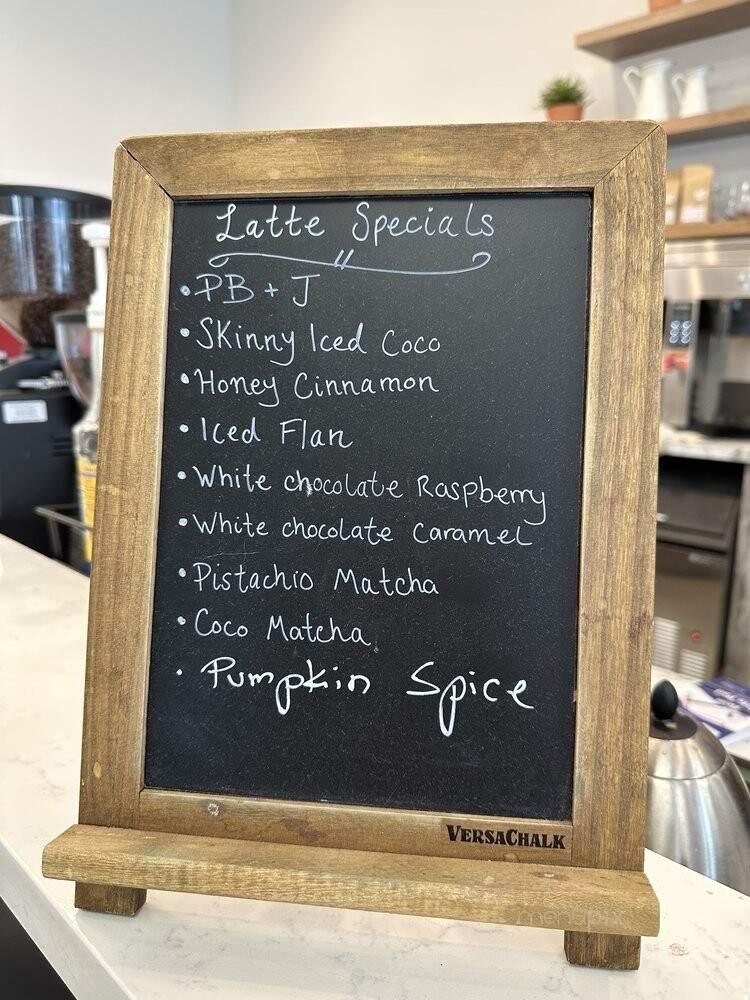 Latte Specials
• PB + J
• Skinny Iced Coco
• Honey Cinnamon
• Iced Flan
• White chocolate Raspberry
• White chocolate Caramel
• Pistachio Matcha
• Coco Matcha
• Pumpkin Spice
VERSACHALK